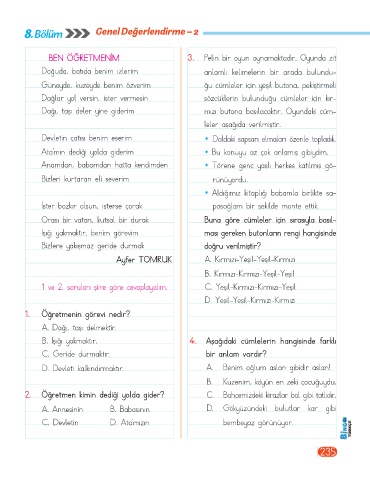 8. Bölüm
Genel Değerlendirme – 2
BEN ÖĞRETMENİM
Doğuda, batıda benim izlerim
Güneyde, kuzeyde benim özverim
Dağlar yol versin, ister vermesin
Dağı, taşı deler yine giderim
Devletin çatısı benim eserim
Ata'mın dediği yolda giderim
Anamdan, babamdan hatta kendimden
Bizleri kurtaran eli severim
İster bozkır olsun, isterse çorak
Orası bir vatan, kutsal bir durak
Işığı yakmaktır, benim görevim
Bizlere yakışmaz geride durmak
Ayfer TOMRUK
1 ve 2. soruları şiire göre cevaplayalım.
1. Öğretmenin görevi nedir?
A. Dağı, taşı delmektir.
B. Işığı yakmaktır.
C. Geride durmaktır.
D. Devleti kalkındırmaktır.
2. Öğretmen kimin dediği yolda gider?
A. Annesinin B. Babasının
C. Devletin D. Ata'mızın
3. Pelin bir oyun oynamaktadır. Oyunda zıt
anlamlı kelimelerin bir arada bulundu-
ğu cümleler için yeşil butona, pekiştirmeli
sözcüklerin bulunduğu cümleler için kır-
mızı butona basılacaktır. Oyundaki cüm-
leler aşağıda verilmiştir.
• Daldaki sapsarı elmaları özenle topladık.
• Bu konuyu az çok anlamış gibiydim.
• Törene genç yaşlı herkes katılmış gö-
rünüyordu.
• Aldığımız kitaplığı babamla birlikte sa-
pasağlam bir şekilde monte ettik.
Buna göre cümleler için sırasıyla basıl-
ması gereken butonların rengi hangisinde
doğru verilmiştir?
A. Kırmızı-Yeşil-Yeşil-Kırmızı
B. Kırmızı-Kırmızı-Yeşil-Yeşil
C. Yeşil-Kırmızı-Kırmızı-Yeşil
D. Yeşil-Yeşil-Kırmızı-Kırmızı
4. Aşağıdaki cümlelerin hangisinde farklı
bir anlam vardır?
A. Benim oğlum aslan gibidir aslan!
B. Kuzenim, köyün en zeki çocuğuydu.
C. Bahçemizdeki kirazlar bal gibi tatlıdır.
D. Gökyüzündeki bulutlar kar gibi
bembeyaz görünüyor.
235